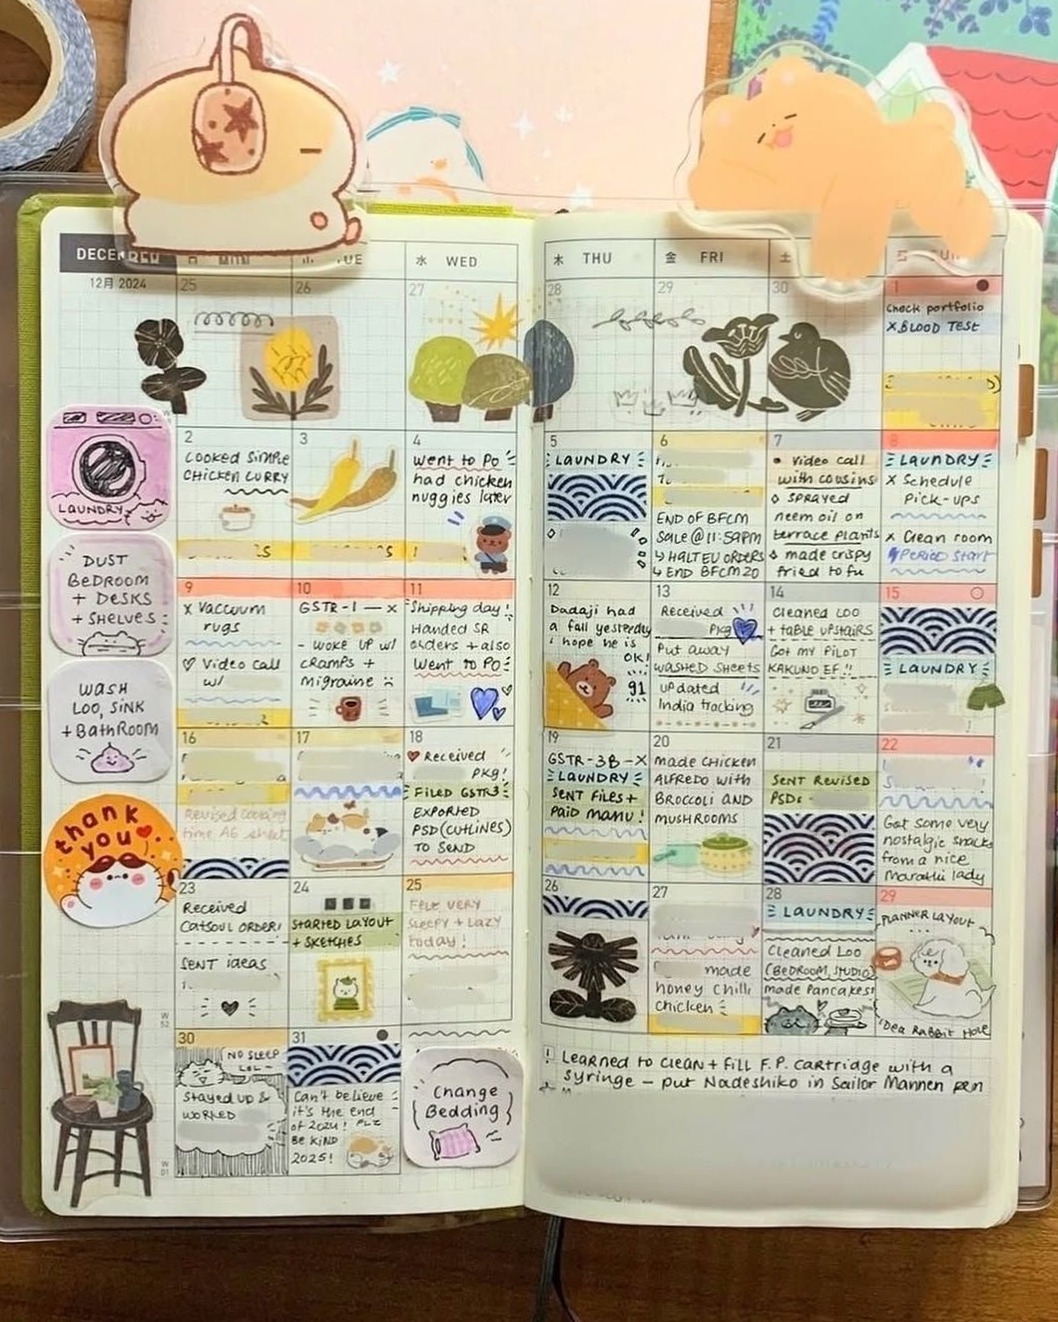 DECEMBER
MON
TUE
水 WED
木 THU
金 FRI
土
SUN
12月 2024
25
26
27
28
29
30
1
Check portfolio
X BLOOD TEST
LAUNDRY
2
COOKED SIMPLE
CHICKEN CURRY
3
4
Went to PO
had chicken
nuggies later
5
LAUNDRY
6
END OF BFCM
SALE @ 11:59PM
↳ HALTED ORDERS
↳ END BFCM20
7
• Video call
with cousins
◊ SPRAYED
neem oil on
terrace plants
◊ made crispy
fried tofu
8
LAUNDRY
X Schedule
Pick-ups
X Clean room
Period Start
DUST
BEDROOM
+ DESKS
+ SHELVES
9
X Vacuum
rugs
♡ Video call
w/
10
GSTR-1 — X
- WOKE UP w/
CRAMPS +
Migraine
11
Shipping day!
Handed SR
orders + also
Went to PO
12
Dadaji had
a fall yesterday
i hope he is
OK!
91
13
Received
PKg
Put away
WASHED SHEETS
updated
India tracking
14
Cleaned LOO
+ TABLE UPSTAIRS
Got MY PILOT
KAKUNO EF!!
15
LAUNDRY
WASH
LOO, SINK
+ BathROOM
16
Revised
time A6 sheet
17
18
♥ Received
PKg!
FILED GSTR3
EXPORTED
PSD (CUTLINES)
TO SEND
19
GSTR-3B - X
LAUNDRY
SENT FILES +
PAID MANU!
20
made CHICKEN
ALFREDO WITH
BROCCOLI AND
MUSHROOMS
21
SENT REVISED
PSDs
22
Got some very
nostalgic snacks
from a nice
marathi lady
thank
you
23
Received
CATSOUL ORDER!
SENT ideas
24
STARTED LAYOUT
+ SKETCHES
25
FELT VERY
SLEEPY + LAZY
today!
26
27
made
honey chilli
chicken
28
LAUNDRY
Cleaned Loo
(BEDROOM, STUDIO)
made Pancakes!
29
PLANNER LAYOUT
Idea RABBIT HOLE
W
52
30
NO SLEEP
LOL~
Stayed up &
WORKED
31
Can't believe
it's the end
of 2024! PLZ
BE KIND
2025!
Change
Bedding
! Learned to clean + fill F.P. cartridge with a
syringe – put Nadeshiko in Sailor Mannen pen
W
01